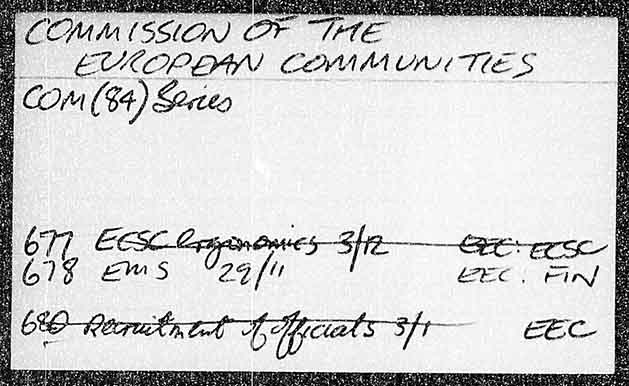 COMMISSION OF THE
EUROPEAN COMMUNITIES
COM(84) Series
677 ECSC Ergonomics 3/12 EEC: ECSC
678 EMS 29/11 EEC. FIN
680 Recruitment of officials 3/1 EEC